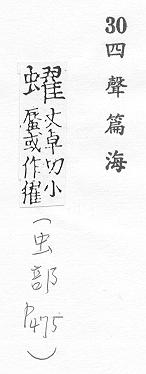 30 四聲篇海
蠗
丈卓切小
蜃或作
(虫部 P475)